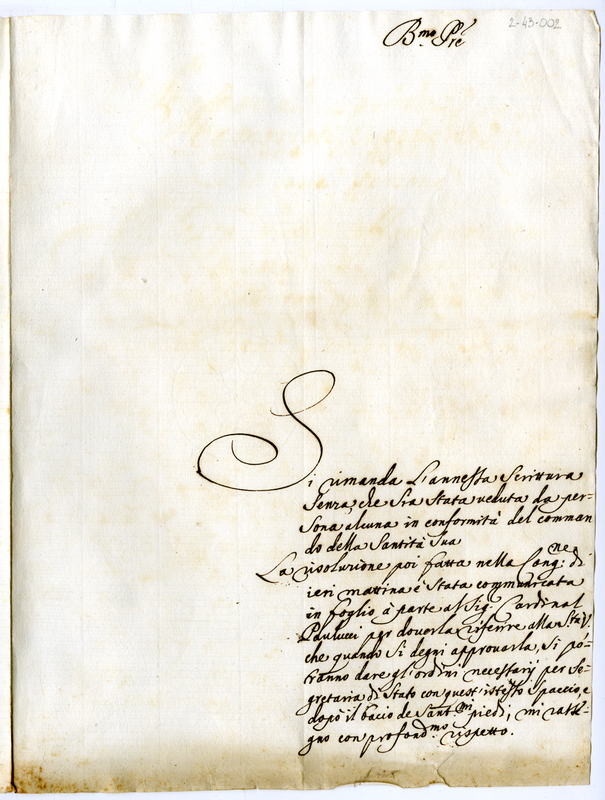 2-43-002
Bmo. Pre
Si rimanda l'annessa Scrittura
senza che sia stata veduta da per-
sona alcuna in conformità del comman
do della Santità Sua
La risoluzione poi fatta nella Cong:ne di
ieri mattina è stata communicata
in foglio à parte al Sig. Cardinal
Paulucci per doverla riferire alla Stà V.
che quando si degni approvarla, si po-
tranno dare gl'ordini necessarij per Se-
gretaria di Stato con quest'istesso spaccio, e
dopo il bacio de Sant.mi piedi, mi rasse-
gno con profond.mo rispetto.